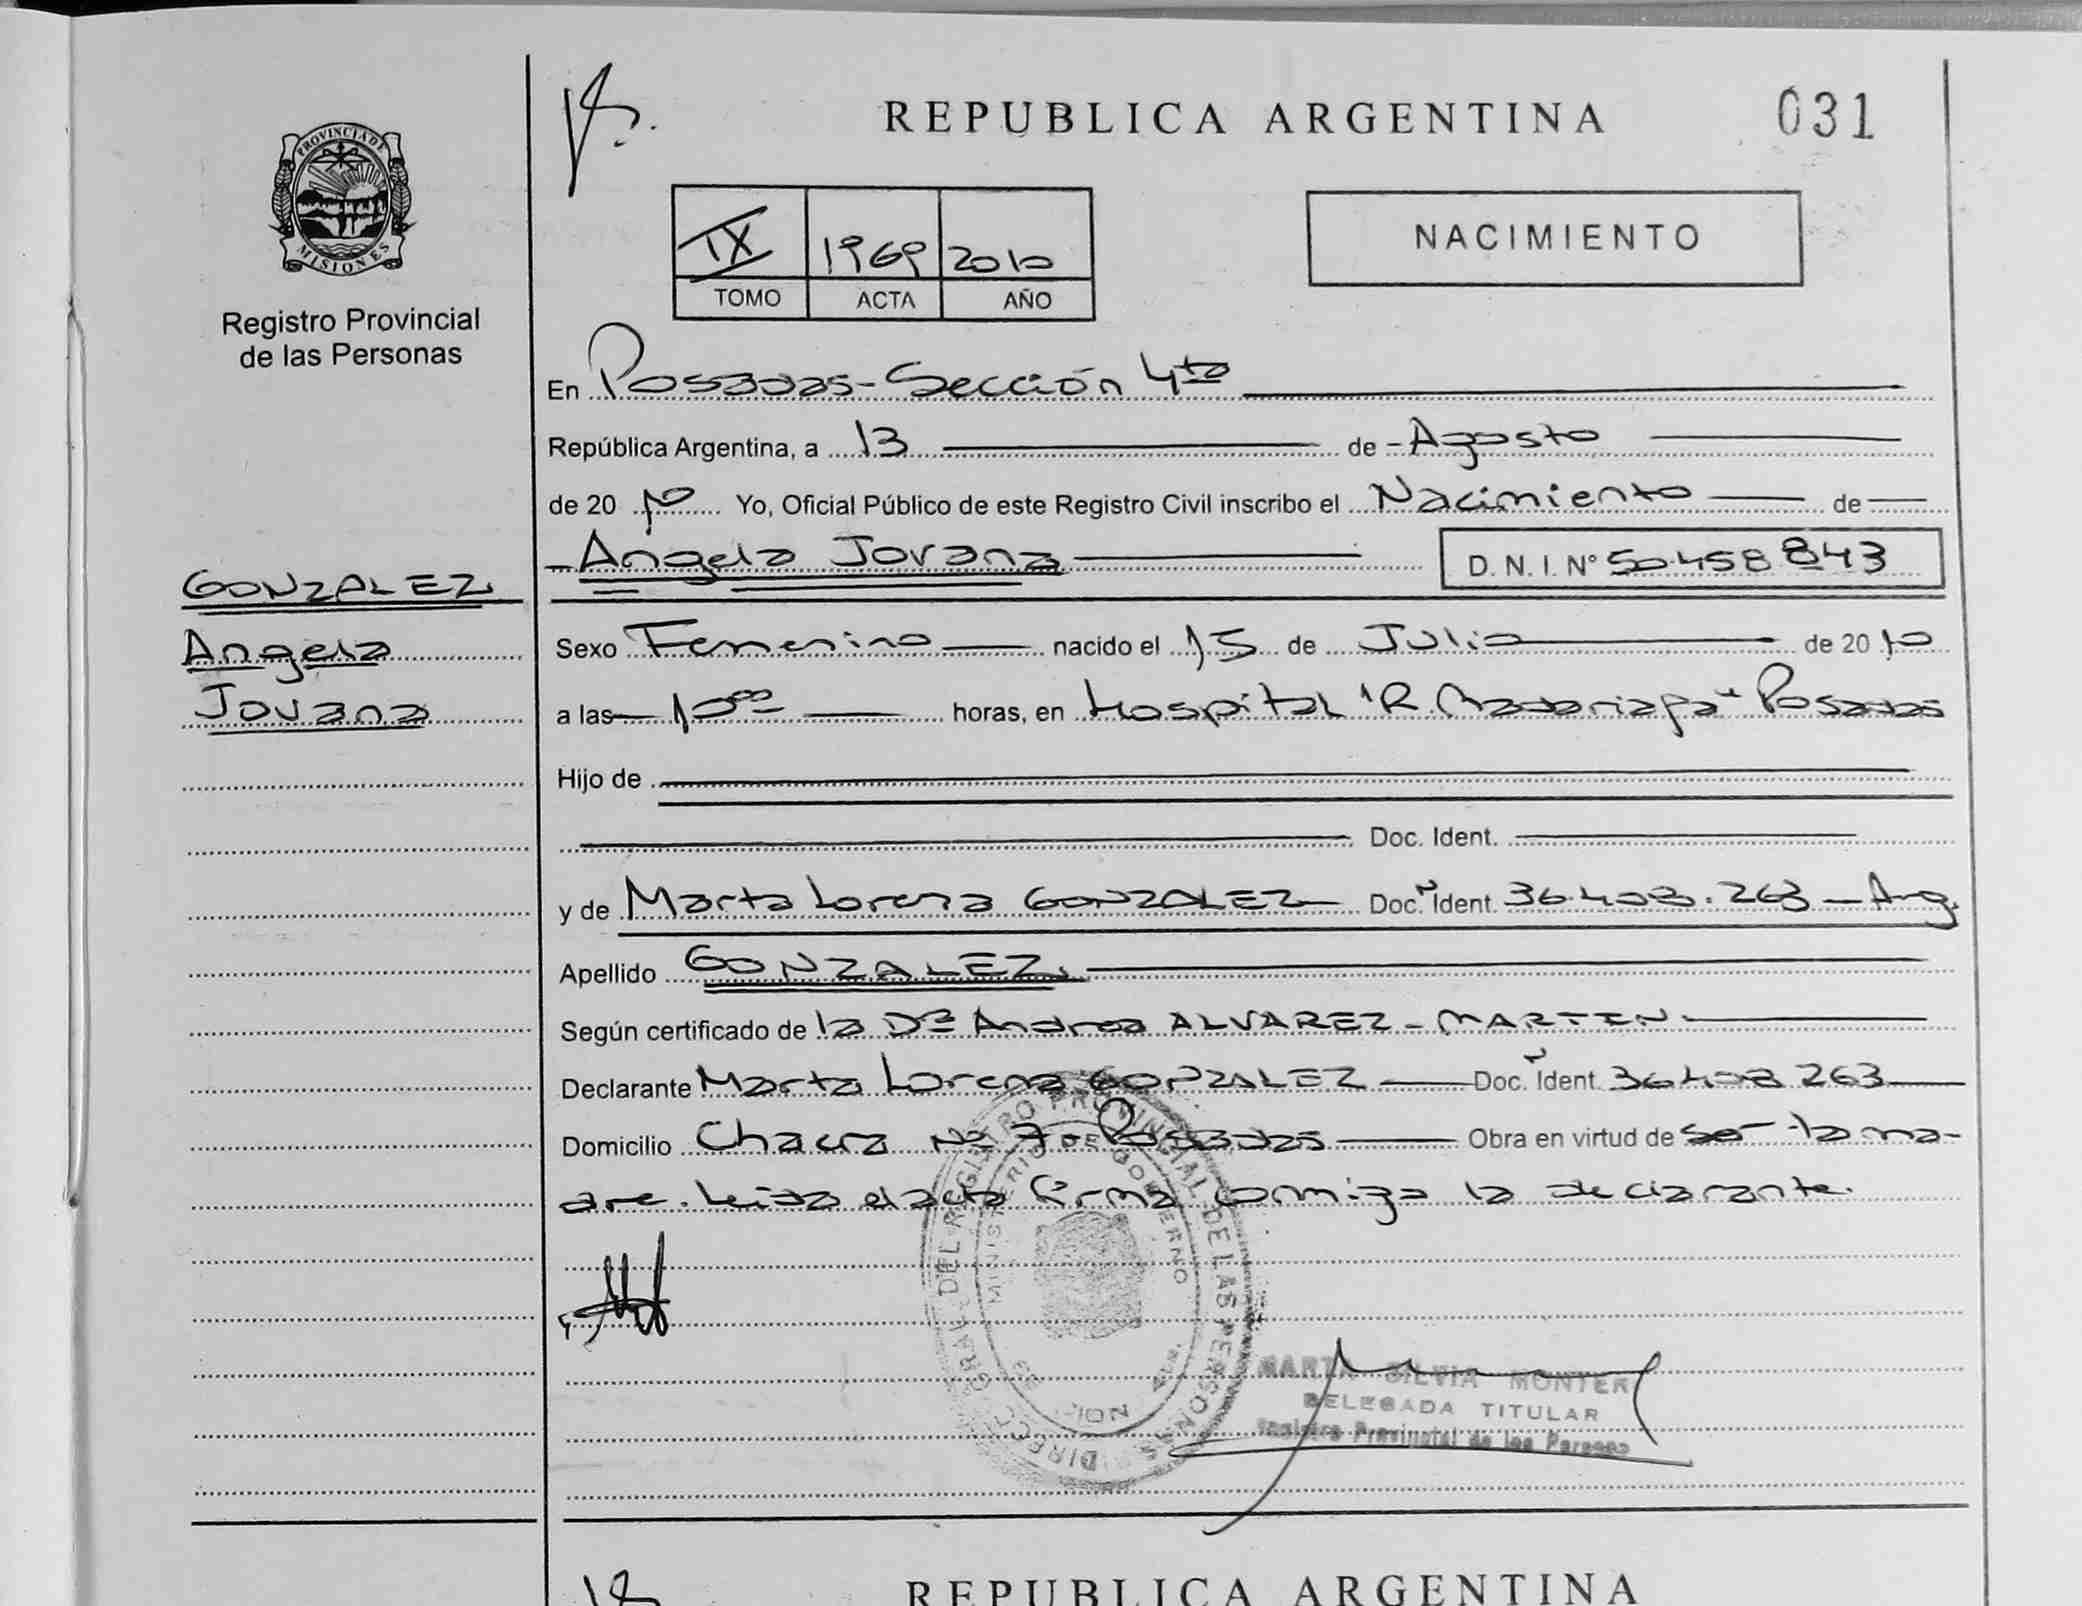 REPUBLICA ARGENTINA
031
PROVINCIA DE
MISIONES
Registro Provincial
de las Personas
IX 1969 2010
TOMO ACTA AÑO
NACIMIENTO
En Posadas - Sección 4ta
República Argentina, a 13 de Agosto
de 2010 Yo, Oficial Público de este Registro Civil inscribo el Nacimiento de
Angela Jovana D. N. I. Nº 50.458.843
GONZALEZ
Angela
Jovana
Sexo Femenino nacido el 15 de Julio de 2010
a las 10:00 horas, en Hospital "R. Madariaga" Posadas
Hijo de
Doc. Ident.
y de Marta Lorena GONZALEZ Doc. Ident. 36.408.263 - Arg.
Apellido GONZALEZ
Según certificado de la Dra Andrea ALVAREZ - MARTEN
Declarante Marta Lorena GONZALEZ Doc. Ident. 36.408.263
Domicilio Chacra Nº 7 - Posadas Obra en virtud de ser la ma-
dre. Leida el acta firma conmigo la declarante.
DIRECC. GRAL. DEL REGISTRO PROVINCIAL DE LAS PERSONAS
MINISTERIO DE GOBIERNO
MARTA SILVIA MONTER
DELEGADA TITULAR
Registro Provincial de las Personas
REPUBLICA ARGENTINA